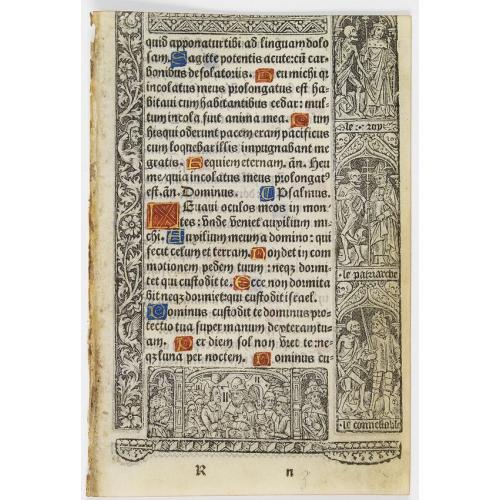 quid apponatur tibi ad linguam dolo
sam. Sagitte potentis acute: cū car
bonibus desolatoriis. Heu michi q
incolatus meus prolongatus est ha
bitaui cum habitantibus cedar: mul
tum incola fuit anima mea. Cum
his qui oderunt pacem eram pacificus
cum loquebar illis impugnabant me
gratis. Requiem eternam. añ. Heu
me/ quia incolatus meus prolongat9
est. añ. Dominus. Psalmus.
Leuaui oculos meos in mon
tes: vnde veniet auxilium mi
chi. Auxilium meum a domino: qui
fecit celum et terram. Non det in com
motionem pedem tuum: neqz dormi
tet qui custodit te. Ecce non dormita
bit neqz dormiet: qui custodit israel.
Dominus custodit te dominus pro
tectio tua super manum dexteram tu
am. Per diem sol non vret te: ne
qz luna per noctem. Dominus cu-
le roy
le patriarche
le connestable
R n